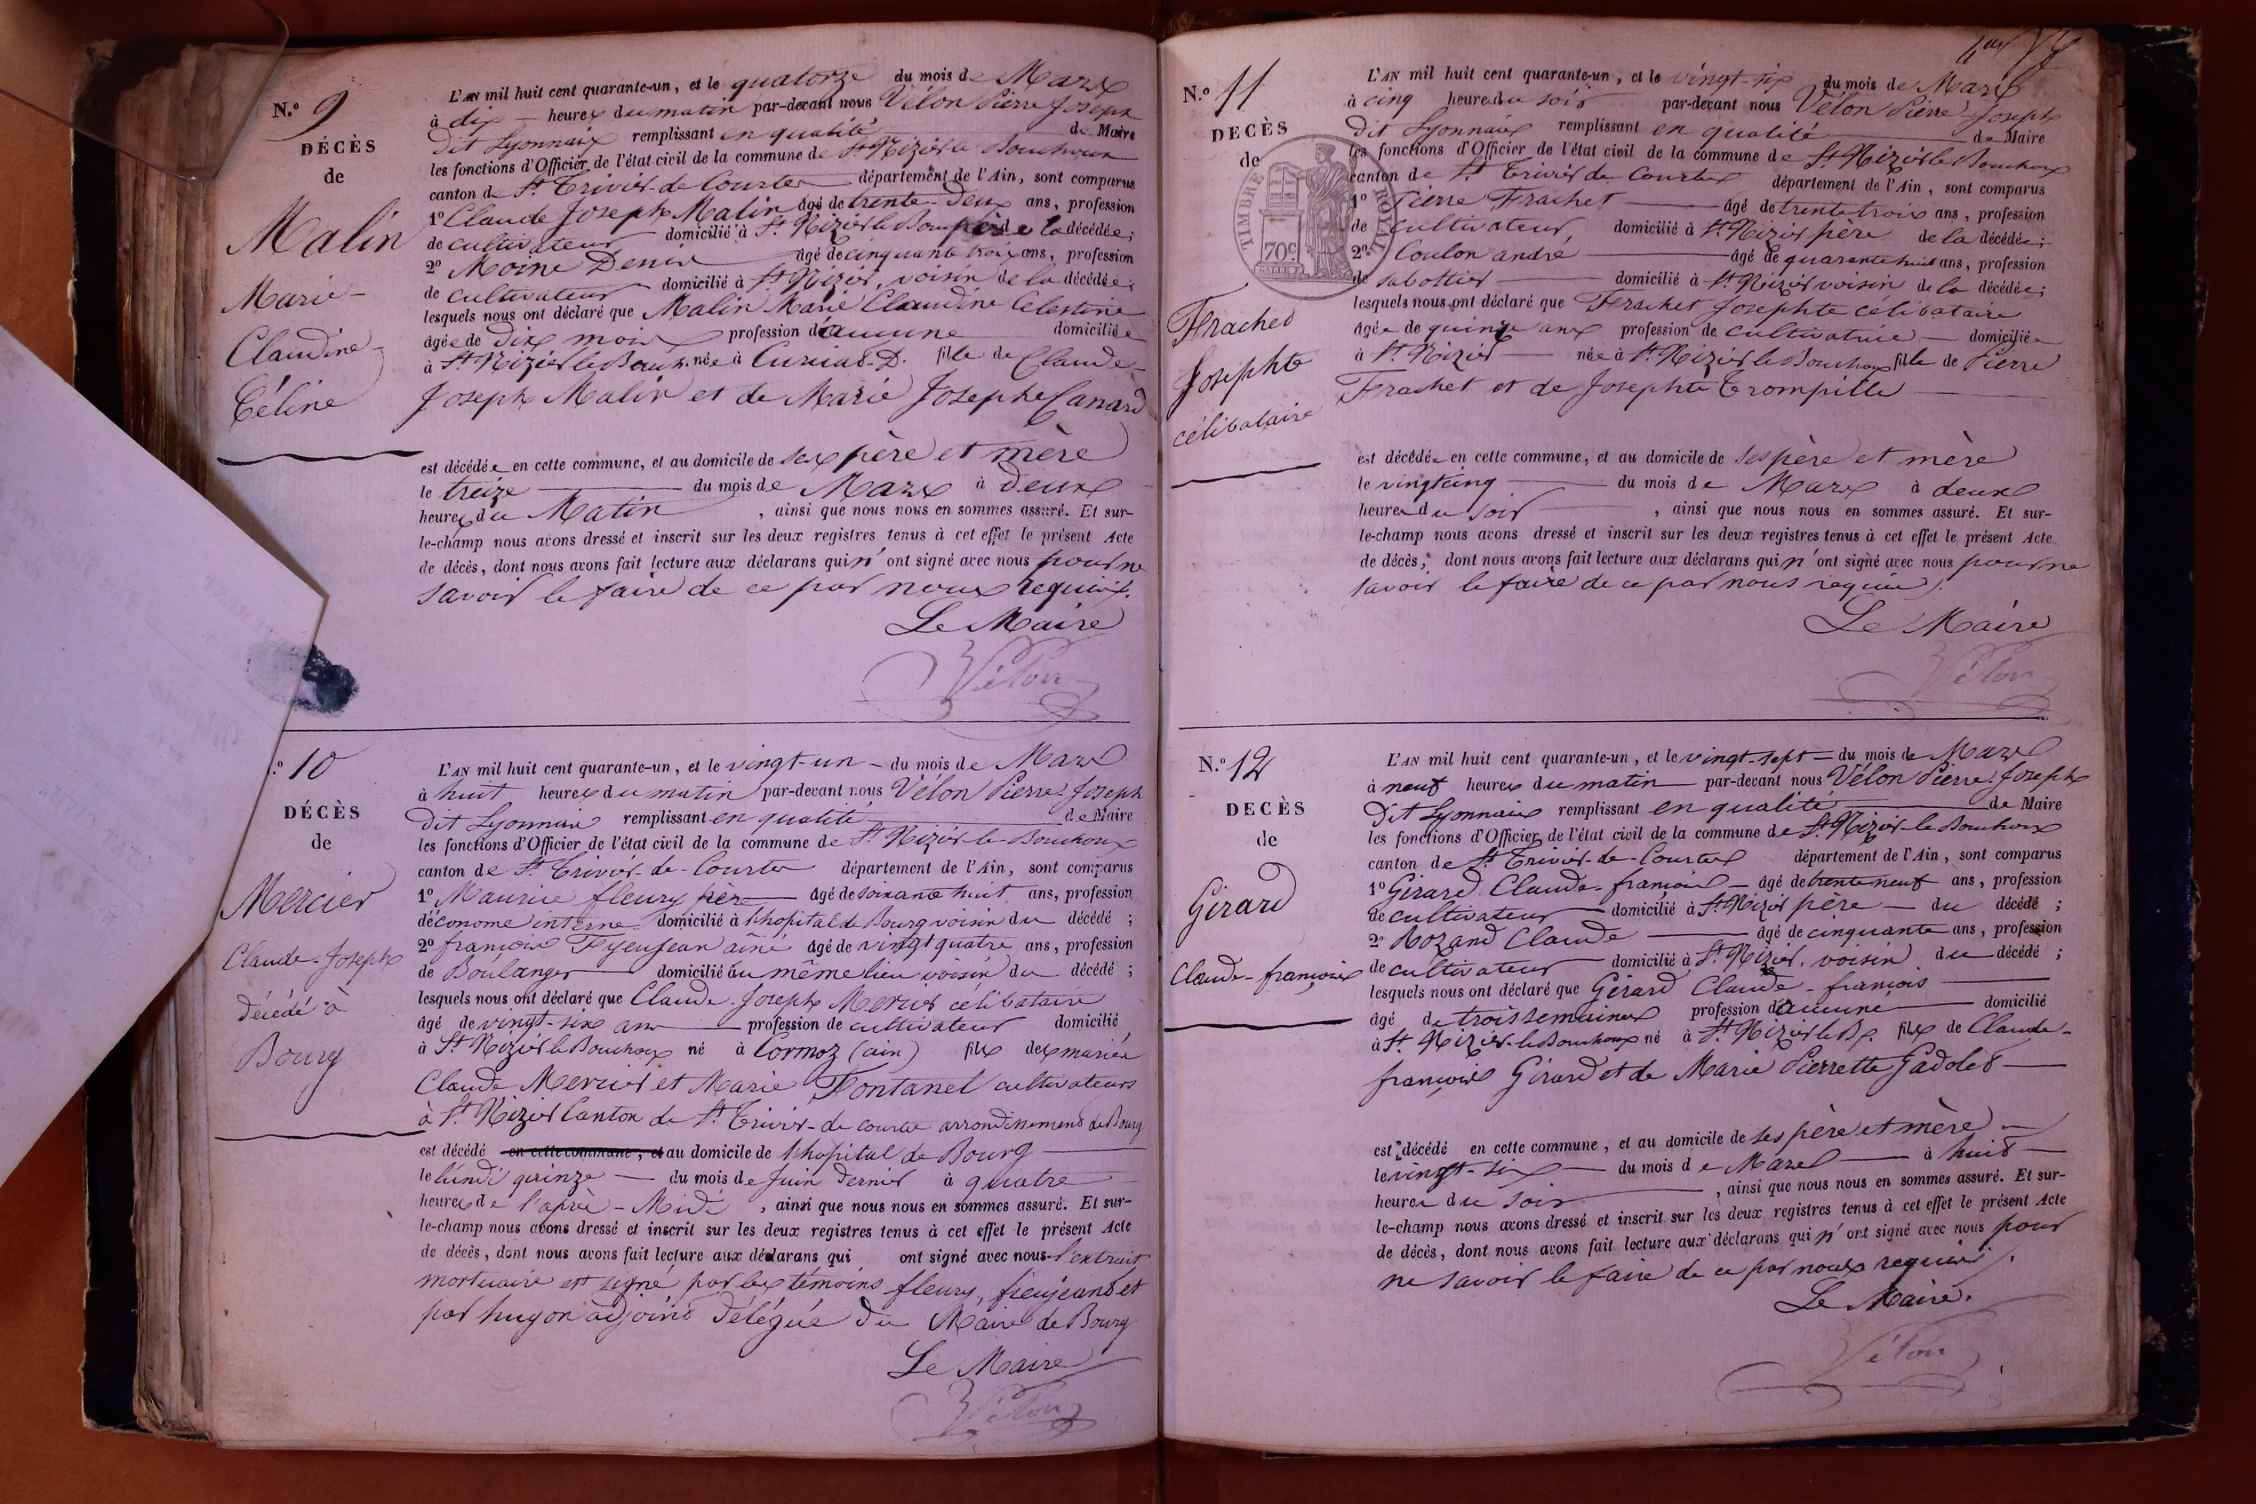 N.º 9
DÉCÈS
de
Malin
Marie-
Claudine-
Céline
L'AN mil huit cent quarante-un, et le quatorze du mois de Mars
à dix heures du matin par-devant nous Vélon Pierre Joseph
dit Lyonnais remplissant en qualité de Maire
les fonctions d'Officier de l'état civil de la commune de St Nizier le Bouchoux
canton de St Trivier-de-Courtes département de l'Ain, sont comparus
1º Claude Joseph Malin âgé de trente-deux ans, profession
de cultivateur domicilié à St Nizier le Boux père de la décédée;
2º Moine Denis âgé de cinquante trois ans, profession
de cultivateur domicilié à St Nizier, voisin de la décédée;
lesquels nous ont déclaré que Malin Marie Claudine Célestine
âgée de dix mois profession d'aucune domiciliée
à St Nizier le Bouch. née à Curciat-D. fille de Claude-
Joseph Malin et de Marie Josephe Canard
est décédée en cette commune, et au domicile de ses père et mère
le treize du mois de Mars à deux
heures du Matin, ainsi que nous nous en sommes assuré. Et sur-
le-champ nous avons dressé et inscrit sur les deux registres tenus à cet effet le présent Acte
de décès, dont nous avons fait lecture aux déclarans qui n'ont signé avec nous pour ne
savoir le faire de ce par nous requis.
Le Maire
Vélon
.º 10
DÉCÈS
de
Mercier
Claude-Joseph
décédé à
Bourg
L'AN mil huit cent quarante-un, et le vingt-un du mois de Mars
à huit heures du matin par-devant nous Vélon Pierre Joseph
dit Lyonnais remplissant en qualité de Maire
les fonctions d'Officier de l'état civil de la commune de St Nizier-le-Bouchoux
canton de St Trivier-de-Courtes département de l'Ain, sont comparus
1º Maurice fleury père âgé de soixante huit ans, profession
d'économe interne domicilié à l'hopital de Bourg voisin du décédé;
2º françois Fyeujean aîné âgé de vingt quatre ans, profession
de Boulanger domicilié au même lieu voisin du décédé;
lesquels nous ont déclaré que Claude-Joseph Mercier célibataire
âgé de vingt-six ans profession de cultivateur domicilié
à St Nizier le Bouchoux né à Cormoz (ain) fils des mariés
Claude Mercier et Marie Fontanel cultivateurs
à St Nizier Canton de St Trivier-de-courtes arrondissement de Bourg
est décédé en cette commune, et au domicile de l'hopital de Bourg
le lundi quinze du mois de Juin dernier à quatre
heures de l'après-Midi, ainsi que nous nous en sommes assuré. Et sur-
le-champ nous avons dressé et inscrit sur les deux registres tenus à cet effet le présent Acte
de décès, dont nous avons fait lecture aux déclarans qui ont signé avec nous l'extrait
mortuaire est signé par les témoins fleury, fieujeand et
par hugon adjoint délégué du Maire de Bourg
Le Maire
Vélon
N.º 11
DECÈS
de
Frachet
Josephte
célibataire
TIMBRE ROYAL
70 c
L'AN mil huit cent quarante-un, et le vingt-six du mois de Mars
à cinq heures du soir par-devant nous Vélon Pierre Joseph
dit Lyonnais remplissant en qualité de Maire
les fonctions d'Officier de l'état civil de la commune de St Nizier le Bouchoux
canton de St Trivier de Courtes département de l'Ain, sont comparus
1º Pierre Frachet âgé de trente trois ans, profession
de cultivateur domicilié à St Nizier père de la décédée;
2º Coulon andré âgé de quarante huit ans, profession
de sabottier domicilié à St Nizier voisin de la décédée;
lesquels nous ont déclaré que Frachet Josephte célibataire
âgée de quinze ans profession de cultivatrice domiciliée
à St Nizier née à St Nizier le Bouchoux fille de Pierre
Frachet et de Josephte Trompille
est décédée en cette commune, et au domicile de ses père et mère
le vingt cinq du mois de Mars à deux
heures du soir, ainsi que nous nous en sommes assuré. Et sur-
le-champ nous avons dressé et inscrit sur les deux registres tenus à cet effet le présent Acte
de décès, dont nous avons fait lecture aux déclarans qui n'ont signé avec nous pour ne
savoir le faire de ce par nous requis.
Le Maire
Vélon
N.º 12
DECÈS
de
Girard
Claude-françois
L'AN mil huit cent quarante-un, et le vingt-sept du mois de Mars
à neuf heures du matin par-devant nous Vélon Pierre Joseph
dit Lyonnais remplissant en qualité de Maire
les fonctions d'Officier de l'état civil de la commune de St Nizier-le-Bouchoux
canton de St Trivier-de-Courtes département de l'Ain, sont comparus
1º Girard Claude-françois âgé de trente neuf ans, profession
de cultivateur domicilié à St Nizier père du décédé;
2º Rozand Claude âgé de cinquante ans, profession
de cultivateur domicilié à St Nizier. voisin du décédé;
lesquels nous ont déclaré que Girard Claude-françois
âgé de trois semaines profession d'aucune domicilié
à St Nizier-le-Bouchoux né à St Nizier le Bx. fils de Claude-
françois Girard et de Marie Pierrette Gadolet
est décédé en cette commune, et au domicile de ses père et mère
le vingt-six du mois de Mars à huit
heures du soir, ainsi que nous nous en sommes assuré. Et sur-
le-champ nous avons dressé et inscrit sur les deux registres tenus à cet effet le présent Acte
de décès, dont nous avons fait lecture aux déclarans qui n'ont signé avec nous pour
ne savoir le faire de ce par nous requis.
Le Maire.
Vélon